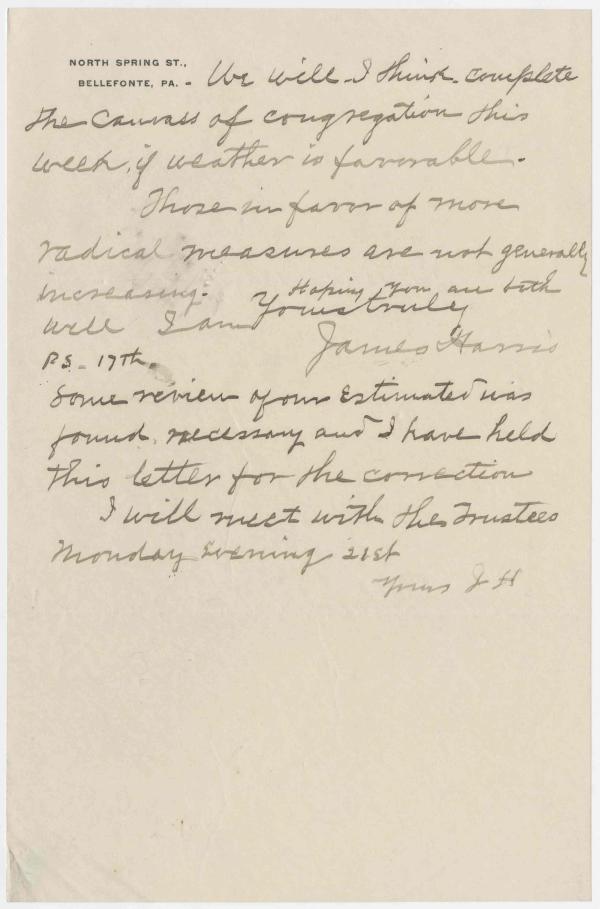 NORTH SPRING ST.,
BELLEFONTE, PA. - We will - I think - complete
the canvass of congregation this
week, if weather is favorable -
Those in favor of more
radical measures are not generally
increasing. Hoping you are both
well I am Yours truly
James Harris
P.S. - 17th.
Some review of our Estimated was
found necessary and I have held
this letter for the correction
I will meet with the Trustees
Monday Evening 21st
Yours J H